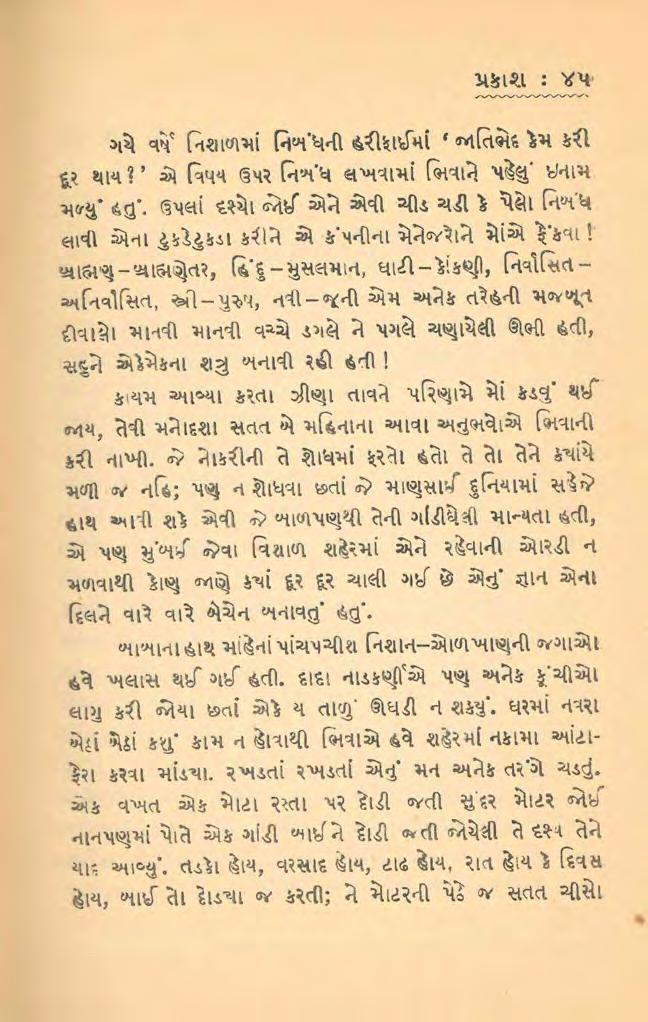 પ્રકાશ : ૪૫
ગયે વર્ષે નિશાળમાં નિબંધની હરીફાઈમાં ‘ જાતિભેદ કેમ કરી
દૂર થાય ?’ એ વિષય ઉપર નિબંધ લખવામાં ભિવાને પહેલું ઇનામ
મળ્યું હતું. ઉપલાં દૃશ્યો જોઈ એને એવી ચીડ ચડી કે પેલો નિબંધ
લાવી એના ટુકડેટુકડા કરીને એ કંપનીના મેનેજરોને મોંએ ફેંકવા !
બ્રાહ્મણ – બ્રાહ્મણેતર, હિંદુ – મુસલમાન, ઘાટી – કોંકણી, નિર્વાસિત –
અનિર્વાસિત, સ્ત્રી – પુરુષ, નવી – જૂની એમ અનેક તરેહની મજબૂત
દીવાલો માનવી માનવી વચ્ચે ડગલે ને પગલે ચણાયેલી ઊભી હતી,
સહુને એકેમેકના શત્રુ બનાવી રહી હતી !
કાયમ આવ્યા કરતા ઝીણા તાવને પરિણામે મોં કડવું થઈ
જાય, તેવી મનોદશા સતત બે મહિનાના આવા અનુભવોએ ભિવાની
કરી નાખી. જે નોકરીની તે શોધમાં ફરતો હતો તે તો તેને ક્યાંયે
મળી જ નહિ; પણ ન શોધવા છતાં જે માણસાઈ દુનિયામાં સહેજે
હાથ આવી શકે એવી જે બાળપણથી તેની ગાંડીઘેલી માન્યતા હતી,
એ પણ મુંબઈ જેવા વિશાળ શહેરમાં એને રહેવાની ઓરડી ન
મળવાથી કોણ જાણે ક્યાં દૂર દૂર ચાલી ગઈ છે એનું જ્ઞાન એના
દિલને વારે વારે બેચેન બનાવતું હતું.
બાબાના હાથ માંહેનાં પાંચપચીશ નિશાન–ઓળખાણની જગાઓ
હવે ખલાસ થઈ ગઈ હતી. દાદા નાડકર્ણીએ પણ અનેક કૂંચીઓ
લાગુ કરી જોયા છતાં એકે ય તાળું ઊઘડી ન શક્યું. ઘરમાં નવરા
બેઠાં બેઠાં કશું કામ ન હોવાથી ભિવાએ હવે શહેરમાં નકામા આંટા-
ફેરા કરવા માંડ્યા. રખડતાં રખડતાં એનું મન અનેક તરંગે ચડતું.
એક વખત એક મોટા રસ્તા પર દોડી જતી સુંદર મોટર જોઈ
નાનપણમાં પોતે એક ગાંડી બાઈને દોડી જતી જોયેલી તે દૃશ્ય તેને
યાદ આવ્યું. તડકો હોય, વરસાદ હોય, ટાઢ હોય, રાત હોય કે દિવસ
હોય, બાઈ તો દોડ્યા જ કરતી; ને મોટરની પેઠે જ સતત ચીસો